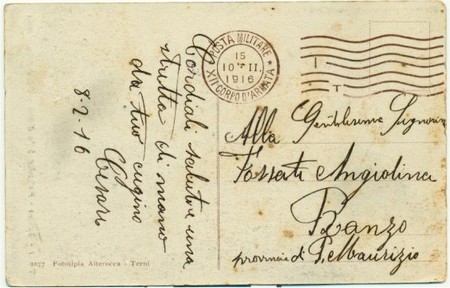 Cordiali saluti e una
stretta di mano
da tuo cugino
Cesare
8-2-16
POSTA MILITARE
15
10 II
1916
XII CORPO D'ARMATA
I
T
Alla Gentilissima Signorina
Fossati Angiolina
Ranzo
provincia di P. Maurizio
2077 Fototipia Alterocca - Terni